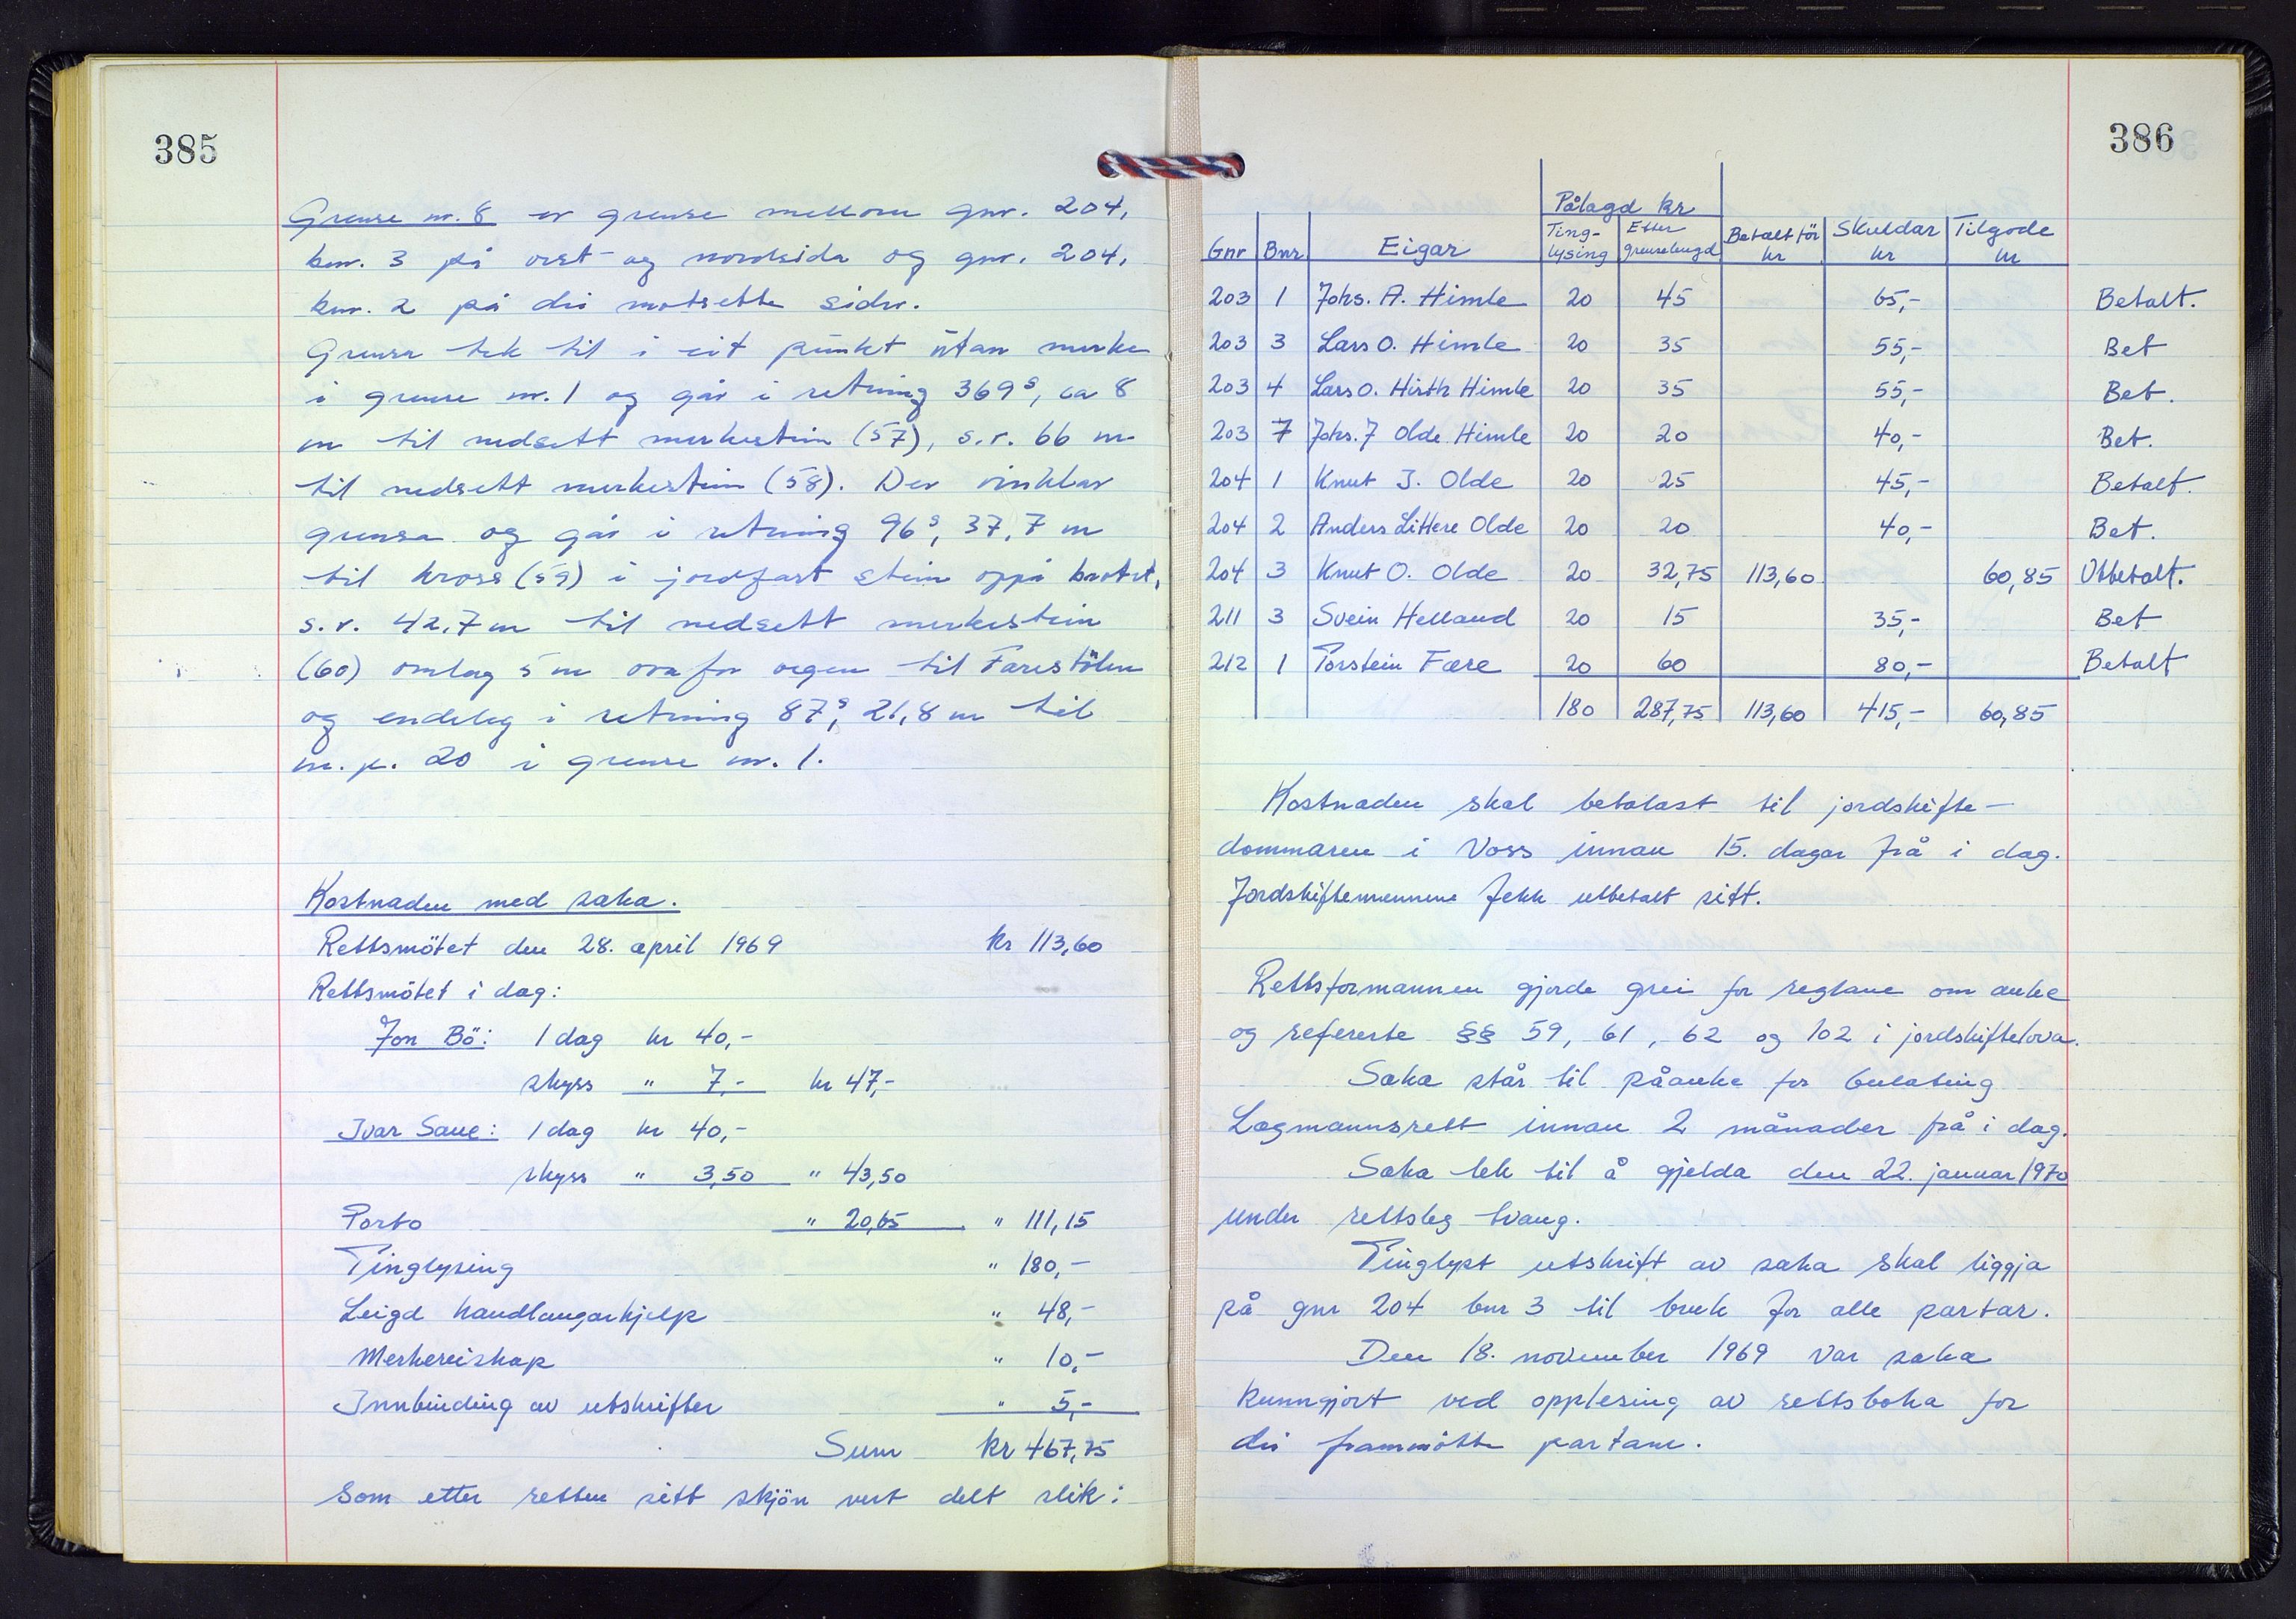 385
Grense nr. 8 er grense mellom gnr. 204,
bnr. 3 på vest- og nordsida og gnr. 204,
bnr. 2 på dei motsette sider.
Grensa tek til i eit punkt utan merke
i grense nr. 1 og går i retning 369ᵍ, ca 8
m til nedsett merkestein (57), s.r. 66 m
til nedsett merkestein (58). Der vinklar
grensa og går i retning 96ᵍ, 37,7 m
til kross (59) i jordfast stein oppå brotet,
s.r. 42,7 m til nedsett merkestein
(60) omlag 5 m ovafor vegen til Farestølen
og endeleg i retning 87ᵍ, 21,8 m til
m.p. 20 i grense nr. 1.
Kostnaden med saka.
Rettsmötet den 28. april 1969 kr 113,60
Rettsmötet i dag:
Jon Bö: 1 dag kr 40,-
skyss " 7,- kr 47,-
Ivar Saue: 1 dag kr 40,-
skyss " 3,50 " 43,50
Porto " 20,65 " 111,15
Tinglysing " 180,-
Leigd handlangarhjelp " 48,-
Merkereiskap " 10,-
Innbinding av utskrifter " 5,-
Sum kr 467,75
Som etter retten sitt skjön vert delt slik:
386
Pålagd kr
Gnr Bnr Eigar Ting-lysing Etter grenselengd Betalt för kr Skuldar kr Tilgode kr
203 1 Johs. A. Himle 20 45 65,- Betalt.
203 3 Lars O. Himle 20 35 55,- Bet
203 4 Lars O. Hirth Himle 20 35 55,- Bet.
203 7 Johs. J Olde Himle 20 20 40,- Bet.
204 1 Knut I. Olde 20 25 45,- Betalt.
204 2 Anders Littere Olde 20 20 40,- Bet.
204 3 Knut O. Olde 20 32,75 113,60 60,85 Utbetalt.
211 3 Svein Helland 20 15 35,- Bet
212 1 Torstein Fære 20 60 80,- Betalt
180 287,75 113,60 415,- 60,85
Kostnaden skal betalast til jordskifte-
dommaren i Voss innan 15. dagar frå i dag.
Jordskiftemennene fekk utbetalt sitt.
Rettsformannen gjorde grei for reglane om anke
og refererte §§ 59, 61, 62 og 102 i jordskiftelova.
Saka står til påanke for Gulating
Lagmannsrett innan 2 månader frå i dag.
Saka tek til å gjelda den 22. januar 1970
under rettsleg tvang.
Tinglyst utskrift av saka skal liggja
på gnr 204 bnr 3 til bruk for alle partar.
Den 18. november 1969 var saka
kunngjort ved opplesing av rettsboka for
dei frammötte partane.